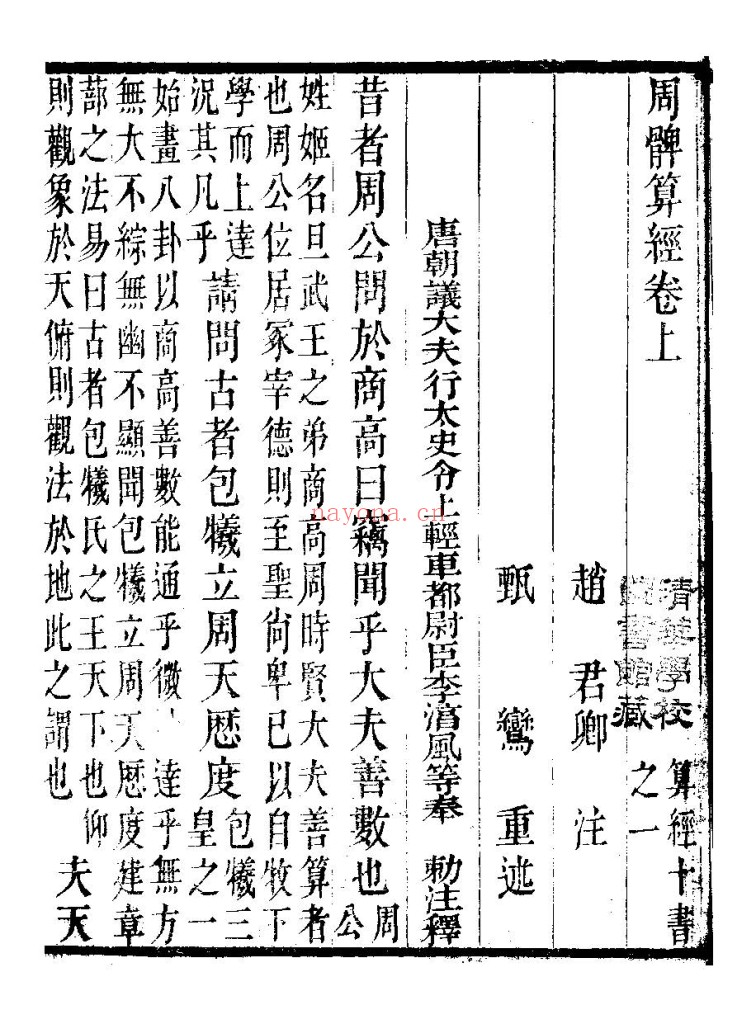 周髀算經卷上
算經十書
之一
清華學校
圖書館藏
趙君卿注
甄鸞重述
唐朝議大夫行太史令上輕車都尉臣李淳風等奉 勅注釋
昔者周公問於商高曰竊聞乎大夫善數也
周
公
姓姬名旦武王之弟商高周時賢大夫善算者
也周公位居冢宰德則至聖尚卑己以自牧下
學而上達
況其凡乎
請問古者包犧立周天厯度
包犧三
皇之一
始畫八卦以商高善數能通乎微 達乎無方
無大不綜無幽不顯聞包犧立周天厯度建章
蔀之法易曰古者包犧氏之王天下也仰
則觀象於天俯則觀法於地此之謂也
夫天
nayona.cn